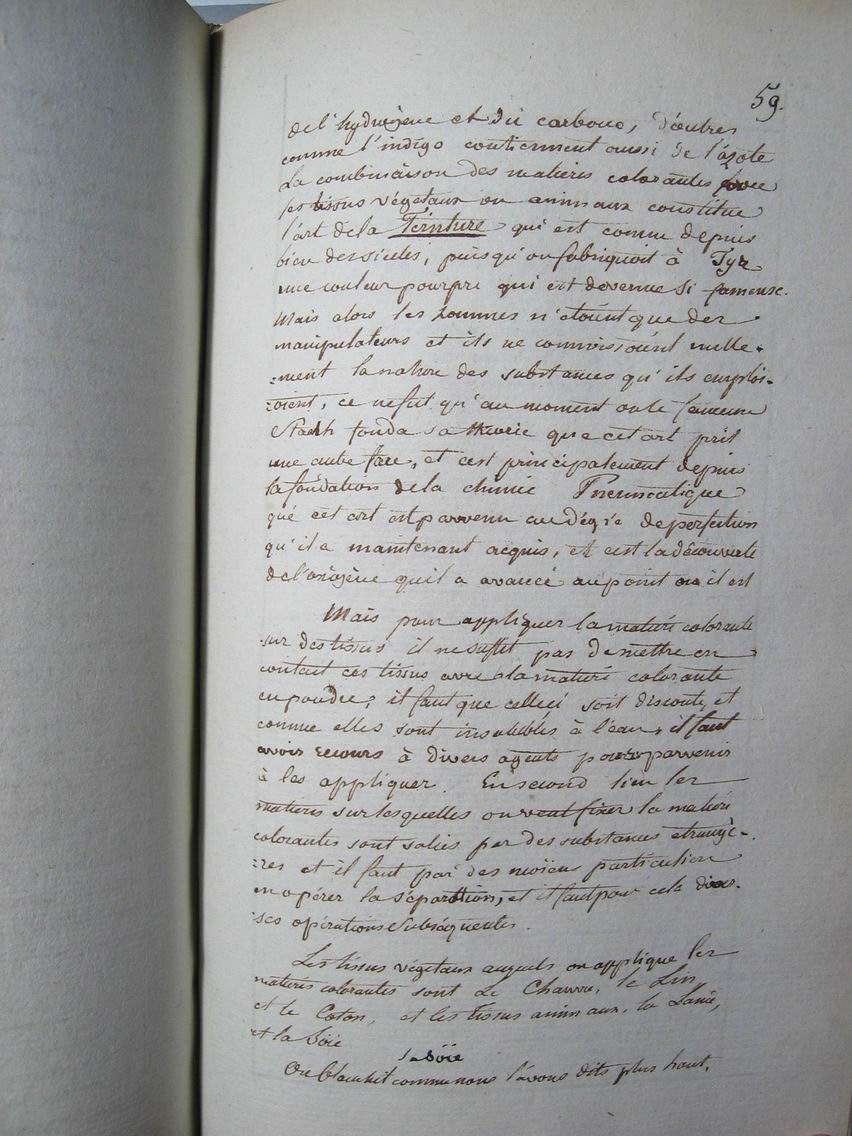 59.
de l'hydrogene et du carbone, d'autres
comme l'indigo contiennent aussi de l'azote
La combinaison des matieres colorantes avec
les tissus végetaux ou animaux constitue
l'art de la Teinture qui est connu depuis
bien des siecles, puisqu'on fabriquoit à Tyr
une couleur pourpre qui est devenue si fameuse.
Mais alors les hommes n'étoient que des
manipulateurs et ils ne connoissoient nulle-
-ment la nature des substances qu'ils emploi-
-oient, ce ne fut qu'au moment ou le fameux
Staahl fonda sa théorie que cet art prit
une autre face, et c'est principalement depuis
la fondation de la chimie Pneumatique
que cet art est parvenu au dégré de perfection
qu'il a maintenant acquis, et c'est la découverte
de l'oxigène qu'il a avancé au point ou il est
Mais pour appliquer la matiere colorante
sur des tissus il ne suffit pas de mettre en
contact ces tissus avec la matiere colorante
en poudre, il faut que celleci soit dissoute, et
comme elles sont insolubles à l'eau, il faut
avoir recours à divers agents pour parvenir
à les appliquer. En second lieu les
matieres sur lesquelles on veut fixer la matiere
colorantes sont salies par des substances etrangè-
-res et il faut par des moïens particuliers
en opérer la séparation, et il faut pour cela diver-
-ses opérations subséquentes.
Les tissus végetaux auquels on applique les
matieres colorantes sont Le Chanvre, le Lin
et le Coton, et les tissus animaux, la Laine,
et la Soïe
la Soïe
On blanchit comme nous l'avons dits plus haut,